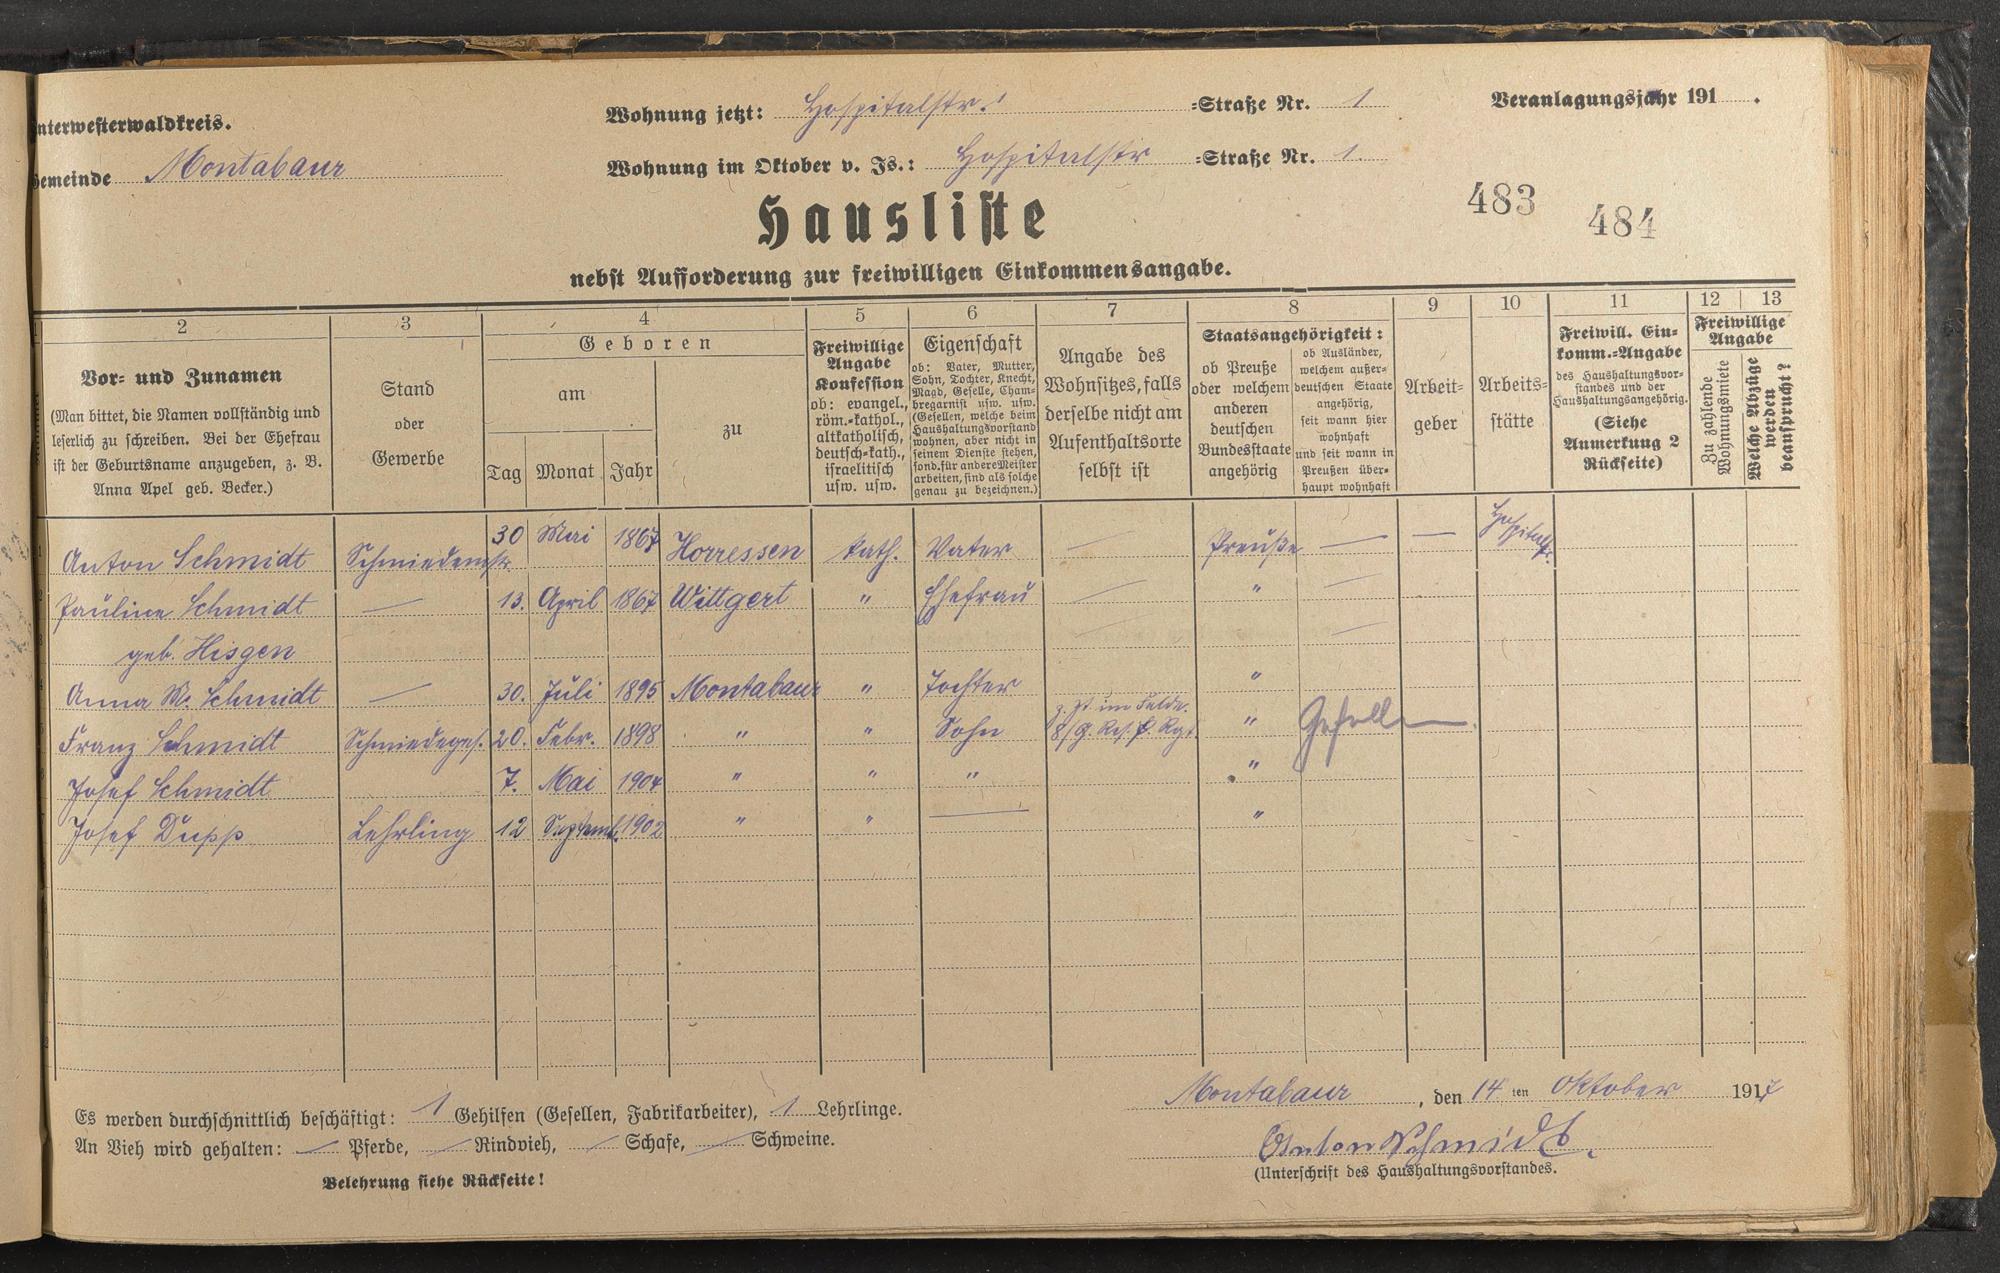 Unterwesterwaldkreis.
Wohnung jetzt: Hospitalstr. 1 =Straße Nr. 1
Veranlagungsjahr 191 .
Gemeinde Montabaur
Wohnung im Oktober v. Js.: Hospitalstr =Straße Nr. 1.
483 484
Hausliste
nebst Aufforderung zur freiwilligen Einkommensangabe.
2 3 4 5 6 7 8 9 10 11 12 13
Vor- und Zunamen
(Man bittet, die Namen vollständig und
leserlich zu schreiben. Bei der Ehefrau
ist der Geburtsname anzugeben, z. B.
Anna Apel geb. Becker.)
Stand
oder
Gewerbe
Geboren
am
Tag Monat Jahr
zu
Freiwillige
Angabe
Konfession
ob: evangel.,
röm.-kathol.,
altkatholisch,
deutsch-kath.,
israelitisch
usw. usw.
Eigenschaft
ob: Vater, Mutter,
Sohn, Tochter, Knecht,
Magd, Geselle, Cham-
bregarnist usw. usw.
(Gesellen, welche beim
Haushaltungsvorstand
wohnen, aber nicht in
seinem Dienste stehen,
sond. für andere Meister
arbeiten, sind als solche
genau zu bezeichnen.)
Angabe des
Wohnsitzes, falls
derselbe nicht am
Aufenthaltsorte
selbst ist
Staatsangehörigkeit:
ob Preuße
oder welchem
anderen
deutschen
Bundesstaate
angehörig
ob Ausländer,
welchem außer-
deutschen Staate
angehörig,
seit wann hier
wohnhaft
und seit wann in
Preußen über-
haupt wohnhaft
Arbeit-
geber
Arbeits-
stätte
Freiwill. Ein-
komm.-Angabe
des Haushaltungsvor-
standes und der
Haushaltungsangehörig.
(Siehe
Anmerkung 2
Rückseite)
Freiwillige
Angabe
Zu zahlende
Wohnungsmiete
Welche Abzüge
werden
beansprucht?
Anton Schmidt Schmiedemstr. 30 Mai 1867 Horressen kath. Vater — Preuße — — Hospitalstr.
Pauline Schmidt — 13. April 1867 Wittgert " Ehefrau — " —
geb. Hisgen — —
Anna M. Schmidt — 30. Juli 1895 Montabaur " Tochter "
z. Zt. im Felde.
Franz Schmidt Schmiedeges. 20. Febr. 1898 " " Sohn 8/ Rgt. " Gefallen
Josef Schmidt 7. Mai 1904 " " " "
Josef Dupp Lehrling 12 Septemb. 1902 " " — "
Es werden durchschnittlich beschäftigt: 1 Gehilfen (Gesellen, Fabrikarbeiter), 1 Lehrlinge.
An Vieh wird gehalten: — Pferde, — Rindvieh, — Schafe, — Schweine.
Belehrung siehe Rückseite!
Montabaur, den 14 ten Oktober 1917
Anton Schmidt.
(Unterschrift des Haushaltungsvorstandes.